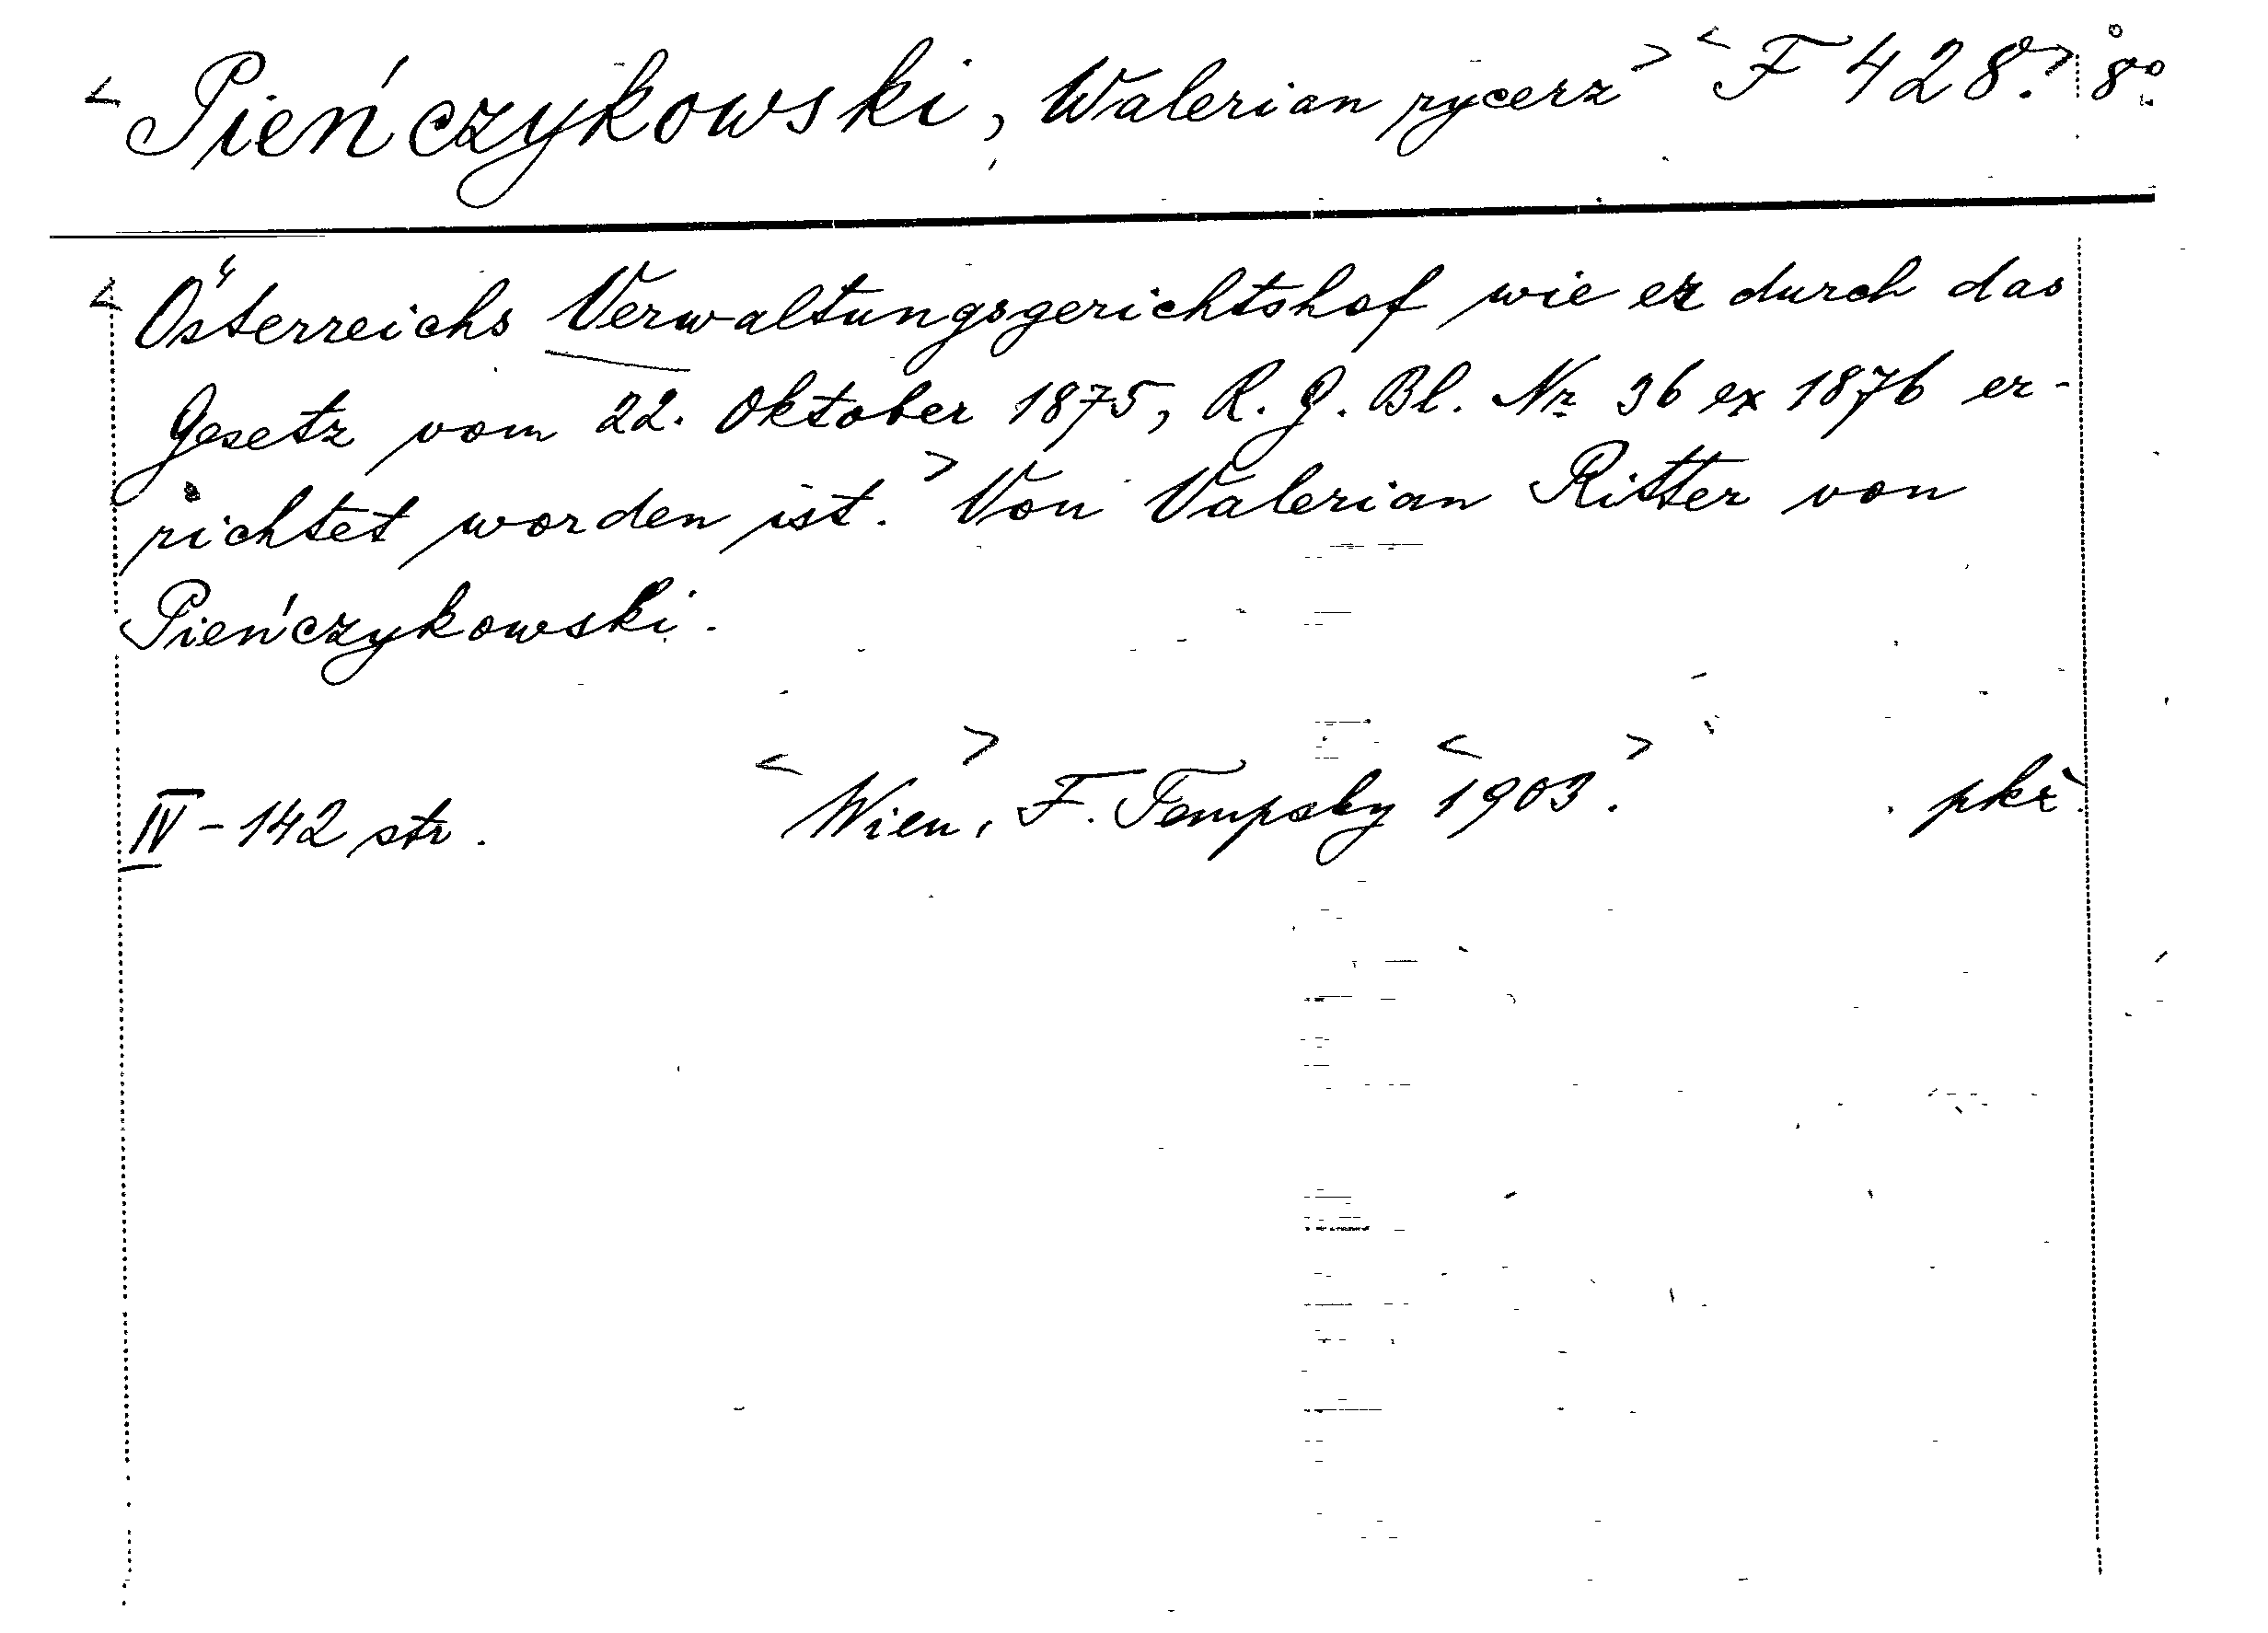 <Pieńczykowski, Walerian rycerz> <F 428.> 8°
<Österreichs Verwaltungsgerichtshof wie er durch das
Gesetz vom 22. Oktober 1875, R. G. Bl. Nr 36 ex 1876 er-
richtet worden ist.> Von Valerian Ritter von
Pieńczykowski.
IV - 142 str. <Wien,> F. Tempsky <1903.> pkř.